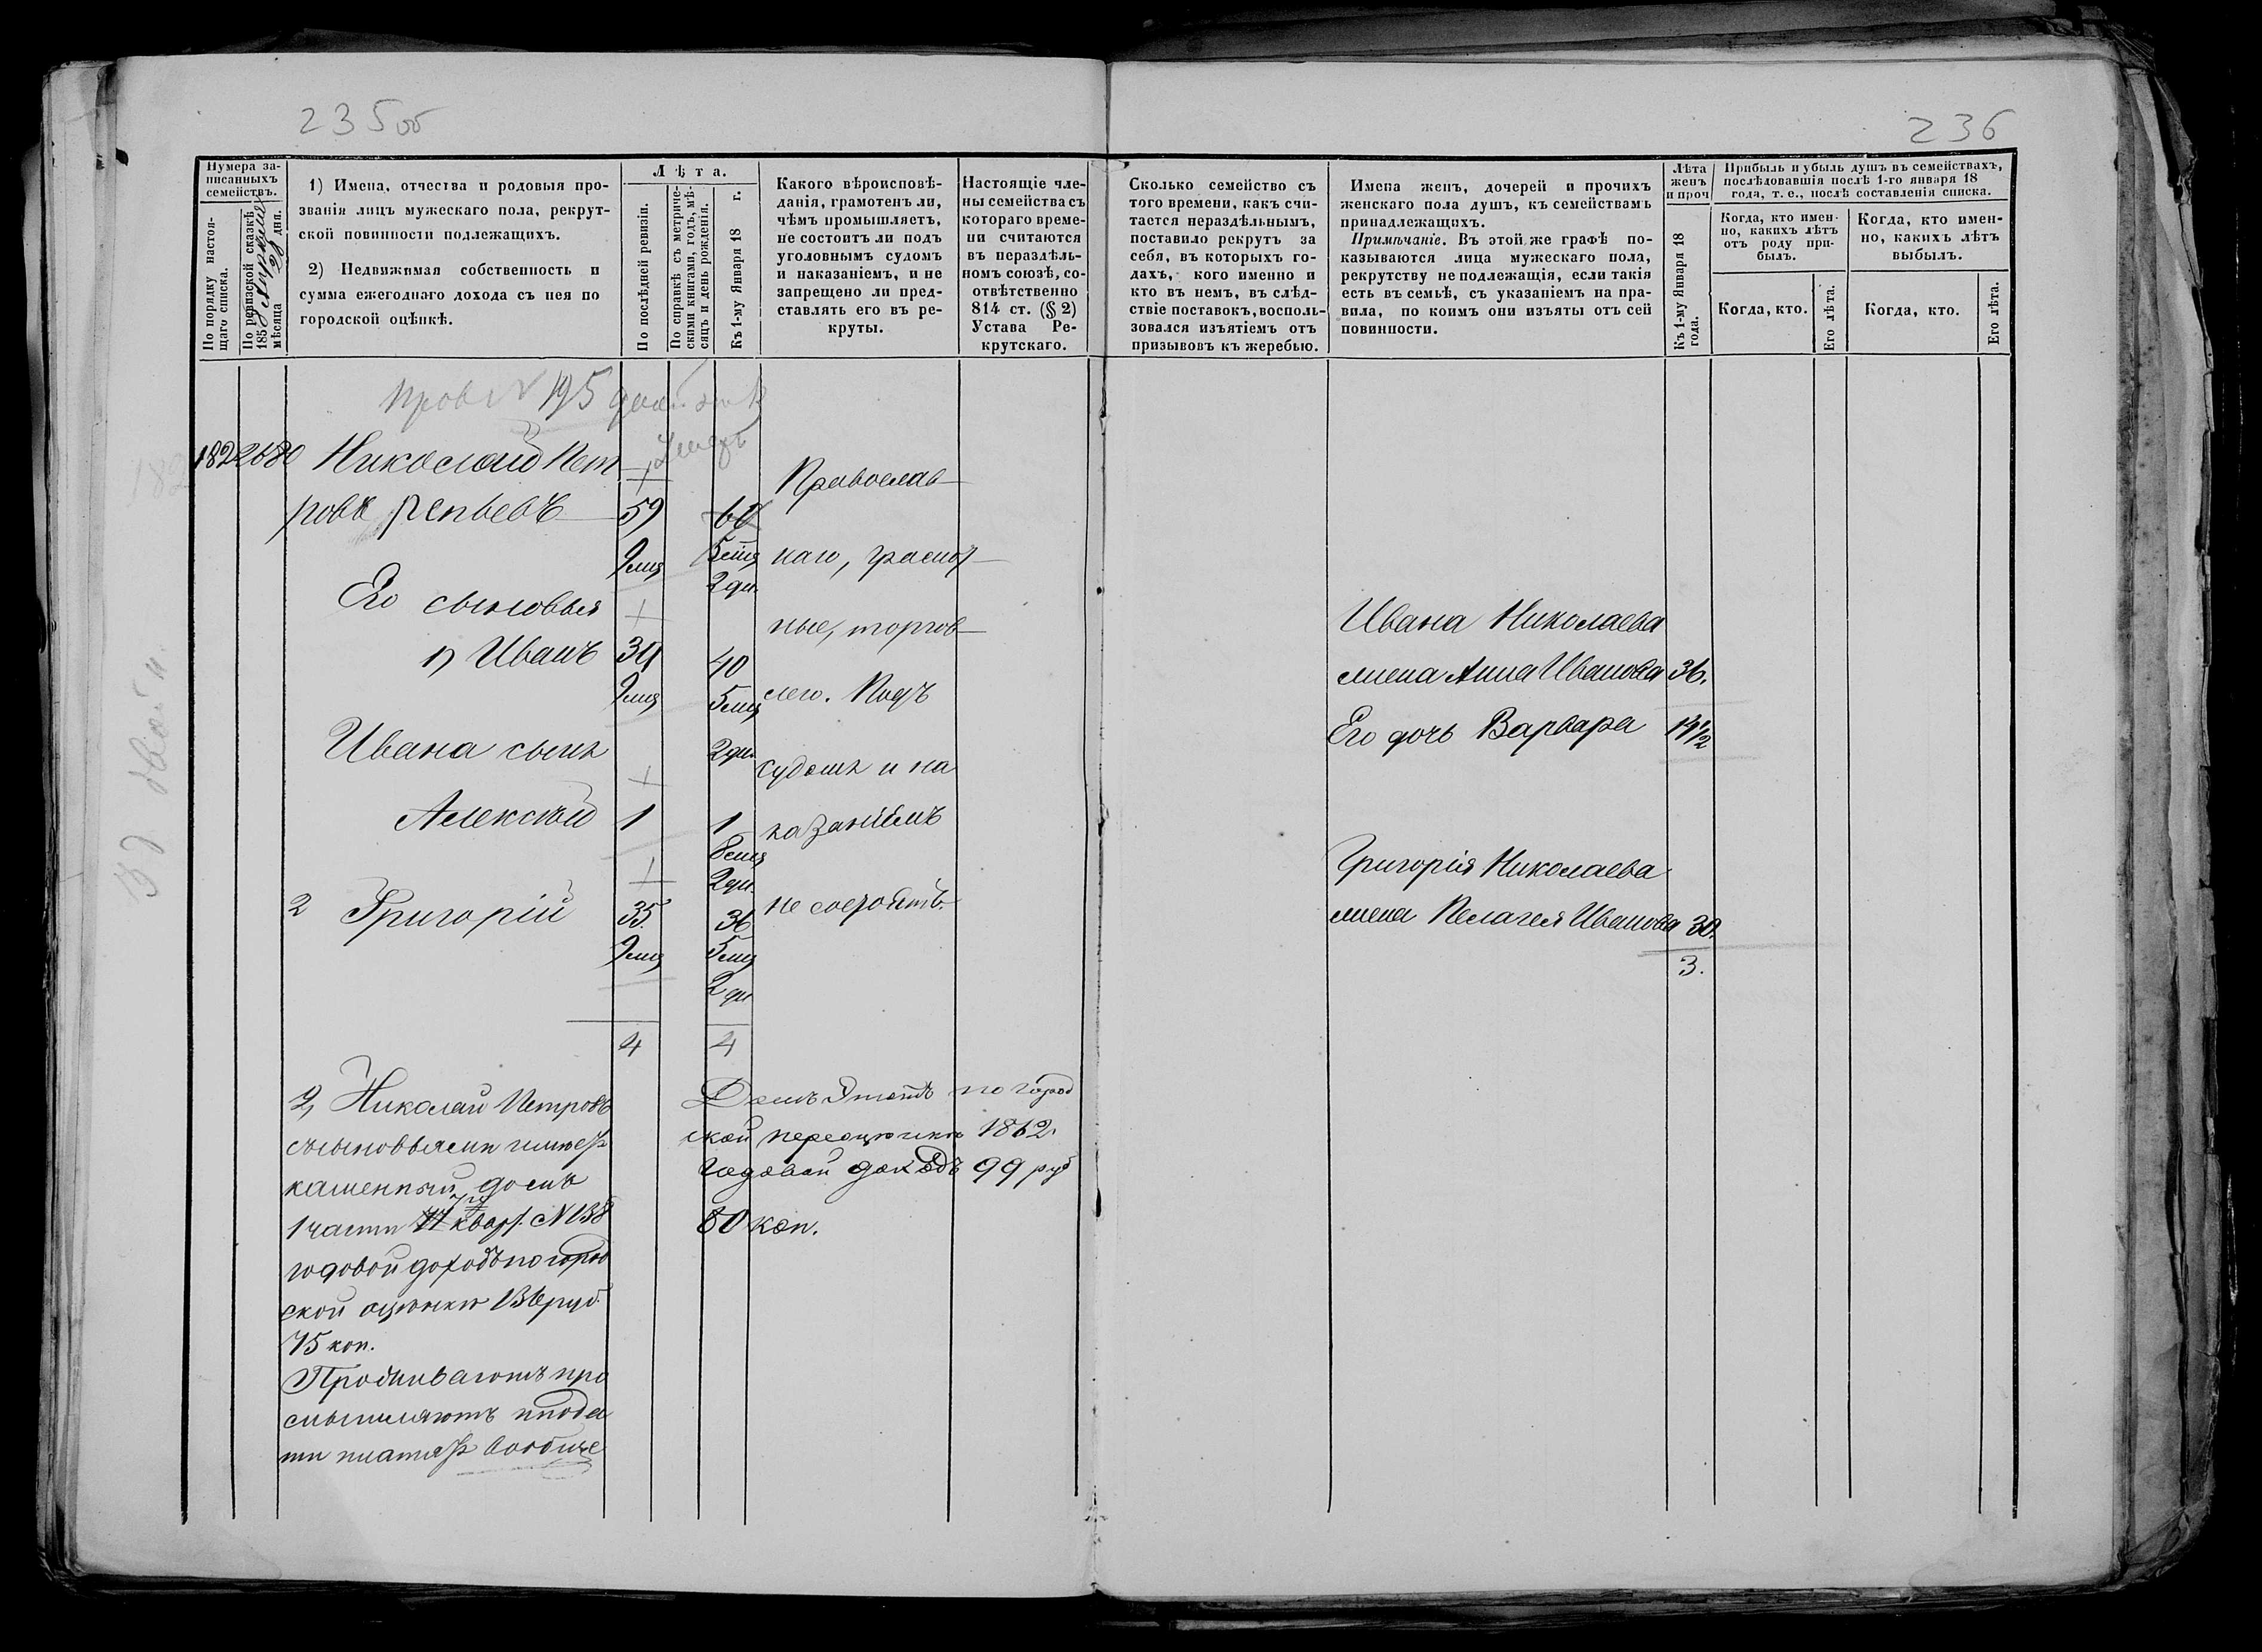 235об
236
Нумера за-
писанныхъ
семействъ.
По порядку настоя-
щаго списка.
По ревизской сказкѣ
185
мѣсяца дня.
1) Имена, отчества и родовыя про-
званія лицъ мужескаго пола, рекрут-
ской повинности подлежащихъ.
2) Недвижимая собственность и
сумма ежегоднаго дохода съ нея по
городской оцѣнкѣ.
Лѣта.
По послѣдней ревизіи.
По справкѣ съ метриче-
скими книгами, годъ, мѣ-
сяцъ и день рожденія.
Къ 1-му Января 18 г.
Какого вѣроисповѣ-
данія, грамотенъ ли,
чѣмъ промышляетъ,
не состоитъ ли подъ
уголовнымъ судомъ
и наказаніемъ, и не
запрещено ли пред-
ставлять его въ ре-
круты.
Настоящіе чле-
ны семейства съ
котораго време-
ни считаются
въ нераздѣль-
номъ союзѣ, со-
отвѣтственно
814 ст. (§ 2)
Устава Ре-
крутскаго.
Сколько семейство съ
того времени, какъ счи-
тается нераздѣльнымъ,
поставило рекрутъ за
себя, въ которыхъ го-
дахъ, кого именно и
кто въ немъ, въ слѣд-
ствіе поставокъ, восполь-
зовался изъятіемъ отъ
призывовъ къ жеребью.
Имена женъ, дочерей и прочихъ
женскаго пола душъ, къ семействамъ
принадлежащихъ.
Примѣчаніе. Въ этой же графѣ по-
казываются лица мужескаго пола,
рекрутству не подлежащія, если такія
есть въ семьѣ, съ указаніемъ на пра-
вила, по коимъ они изъяты отъ сей
повинности.
Лѣта
женъ
и проч
Къ 1-му Января 18
года.
Прибыль и убыль душъ въ семействахъ,
послѣдовавшія послѣ 1-го января 18
года, т. е., послѣ составленія списка.
Когда, кто имен-
но, какихъ лѣтъ
отъ роду при-
былъ.
Когда, кто.
Его лѣта.
Когда, кто имен-
но, какихъ лѣтъ
выбылъ.
Когда, кто.
Его лѣта.
пров N 195
умеръ
182 2680 Николай Пет
ровъ Репьевъ 59
9 мця 5 мця
2 дн.
Его сыновья
1) Иванъ 34 40
9 мця 5 мця
2 дн.
Ивана сынъ
Алексѣй 1 1
8 мця
2 дн.
2 Григорій 35. 36
9 мця 5 мця
2 дн
4 4
Православ
наго, грамот
ные, торгов
лею. Подъ
судомъ и на
казаніемъ
не состоятъ.
2, Николай Петровъ
съ сыновьями имѣетъ
каменный домъ
1 части кварт. N 138
годовой доходъ по город
ской оцѣнкѣ 136 руб.
75 коп.
Проживаютъ про
мышляютъ и пода
ти платятъ вообще
Домъ этотъ по город
ской переоцѣнкѣ 1862
годовой доходъ 99 руб
80 коп.
Ивана Николаева
жена Анна Иванова 36.
Его дочь Варвара 14 1/2
Григорія Николаева
жена Пелагея Иванова 30.
3.